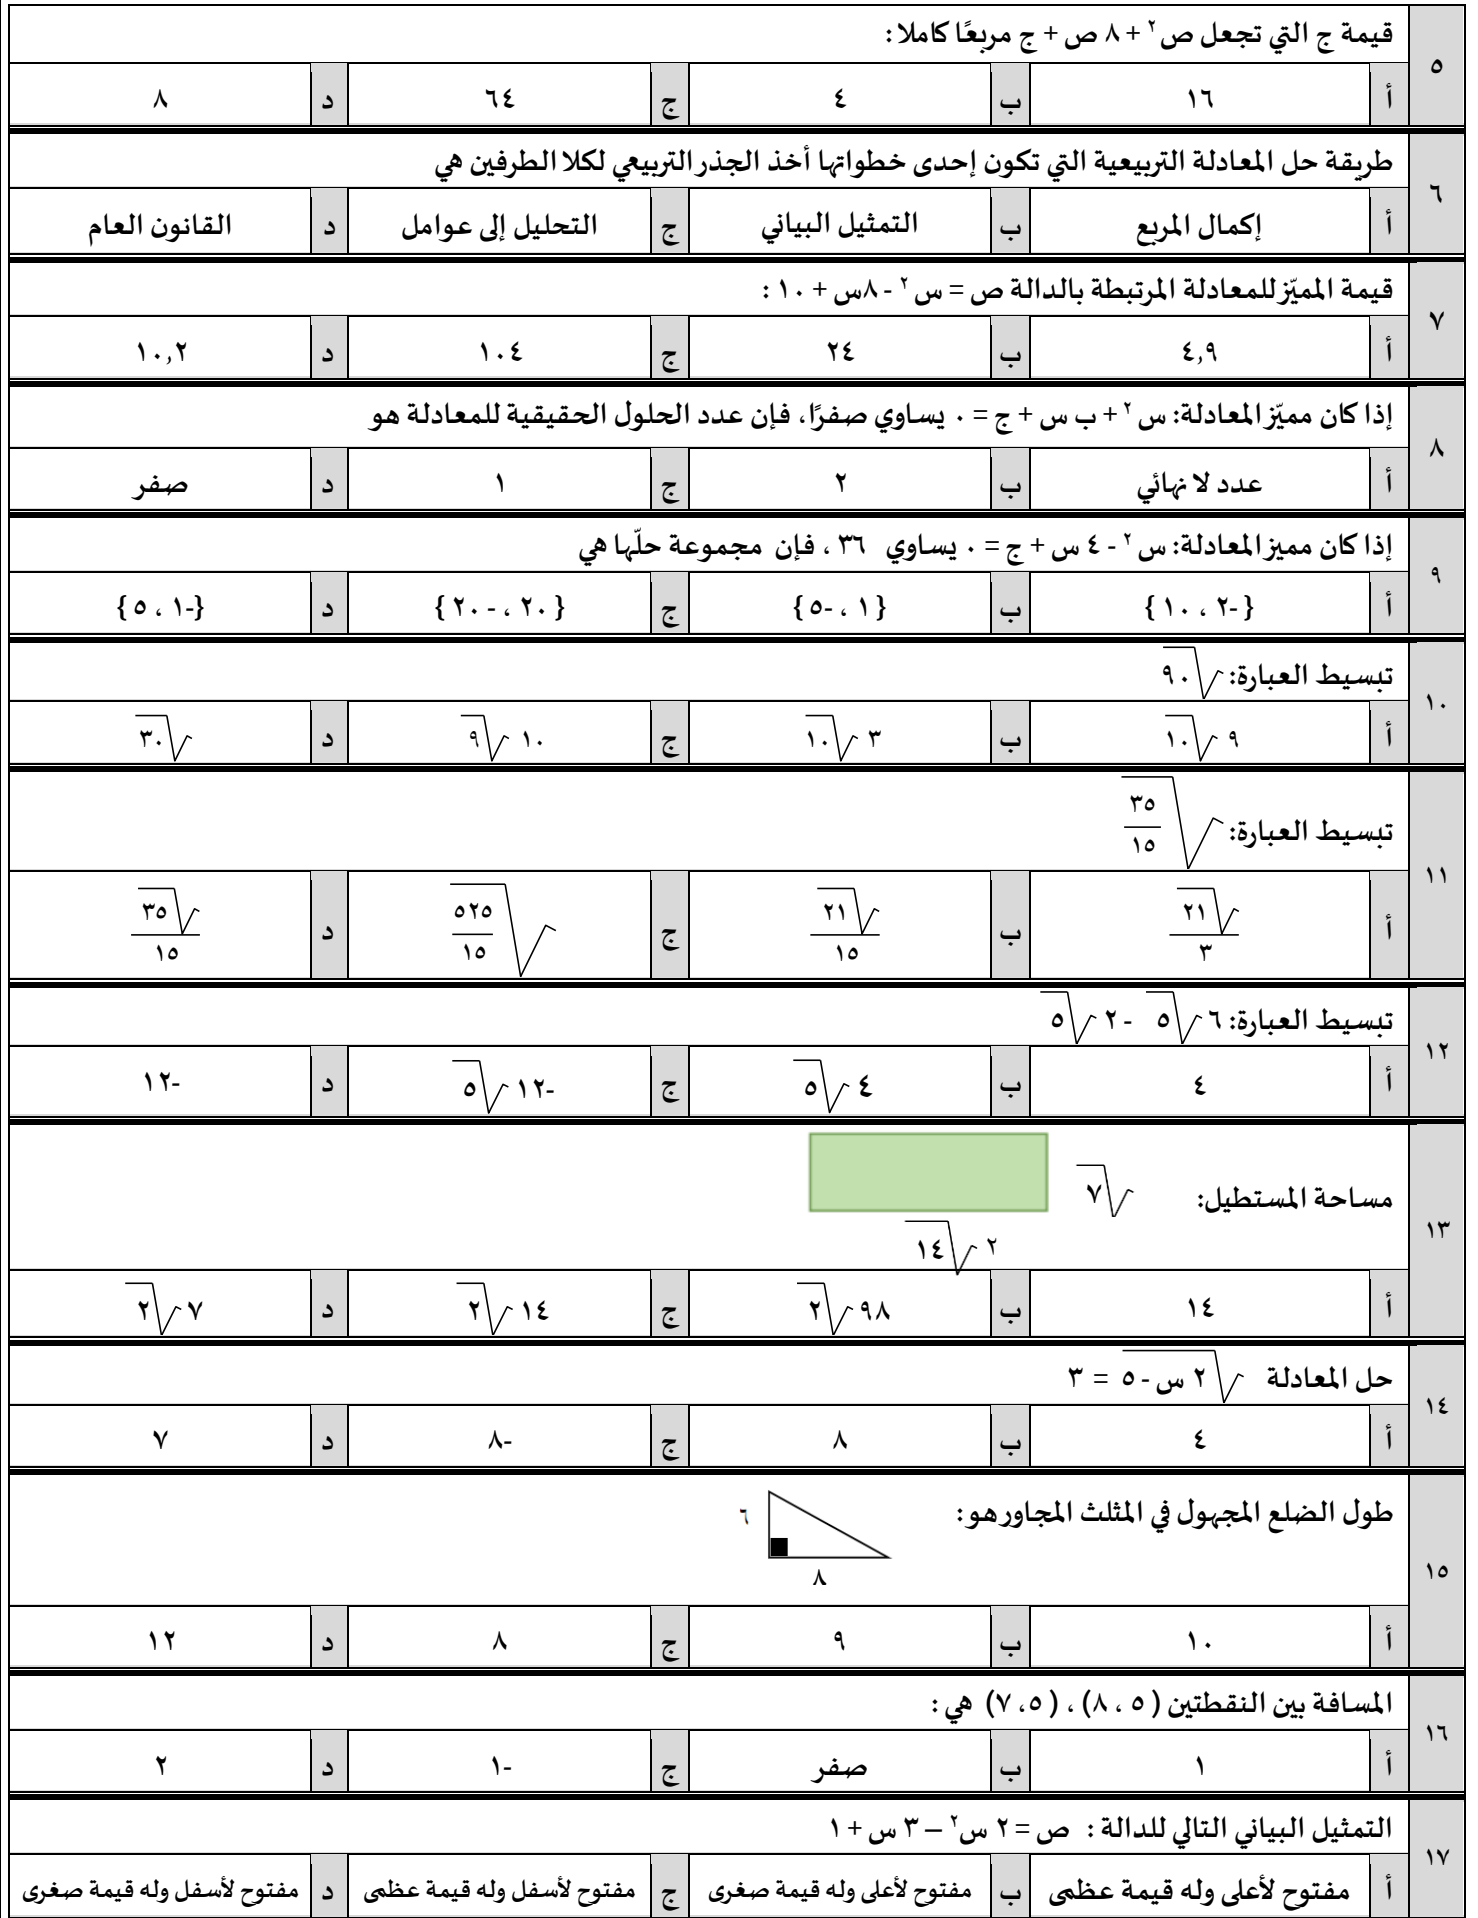 ٥
قيمة ج التي تجعل ص² + ٨ ص + ج مربعًا كاملا :
أ ١٦ ب ٤ ج ٦٤ د ٨
٦
طريقة حل المعادلة التربيعية التي تكون إحدى خطواتها أخذ الجذر التربيعي لكلا الطرفين هي
أ إكمال المربع ب التمثيل البياني ج التحليل إلى عوامل د القانون العام
٧
قيمة المميّز للمعادلة المرتبطة بالدالة ص = س² - ٨س + ١٠ :
أ ٤,٩ ب ٢٤ ج ١٠٤ د ١٠,٢
٨
إذا كان مميّز المعادلة: س² + ب س + ج = ٠ يساوي صفرًا، فإن عدد الحلول الحقيقية للمعادلة هو
أ عدد لا نهائي ب ٢ ج ١ د صفر
٩
إذا كان مميز المعادلة: س² - ٤ س + ج = ٠ يساوي ٣٦ ، فإن مجموعة حلّها هي
أ {-٢ ، ١٠ } ب { ١ ، -٥ } ج { ٢٠ ، - ٢٠ } د {-١ ، ٥ }
١٠
تبسيط العبارة: √٩٠
أ ٩ √١٠ ب ٣ √١٠ ج ١٠ √٩ د √٣٠
١١
تبسيط العبارة: √(٣٥/١٥)
أ √٢١/٣ ب √٢١/١٥ ج √(٥٢٥/١٥) د √٣٥/١٥
١٢
تبسيط العبارة: ٦ √٥ - ٢ √٥
أ ٤ ب ٤ √٥ ج -١٢ √٥ د -١٢
١٣
مساحة المستطيل: √٧
٢ √١٤
أ ١٤ ب ٩٨ √٢ ج ١٤ √٢ د ٧ √٢
١٤
حل المعادلة √(٢ س - ٥) = ٣
أ ٤ ب ٨ ج -٨ د ٧
١٥
طول الضلع المجهول في المثلث المجاور هو :
٦
٨
أ ١٠ ب ٩ ج ٨ د ١٢
١٦
المسافة بين النقطتين ( ٥ ، ٨) ، ( ٥، ٧) هي :
أ ١ ب صفر ج -١ د ٢
١٧
التمثيل البياني التالي للدالة : ص = ٢ س² – ٣ س + ١
أ مفتوح لأعلى وله قيمة عظمى ب مفتوح لأعلى وله قيمة صغرى ج مفتوح لأسفل وله قيمة عظمى د مفتوح لأسفل وله قيمة صغرى